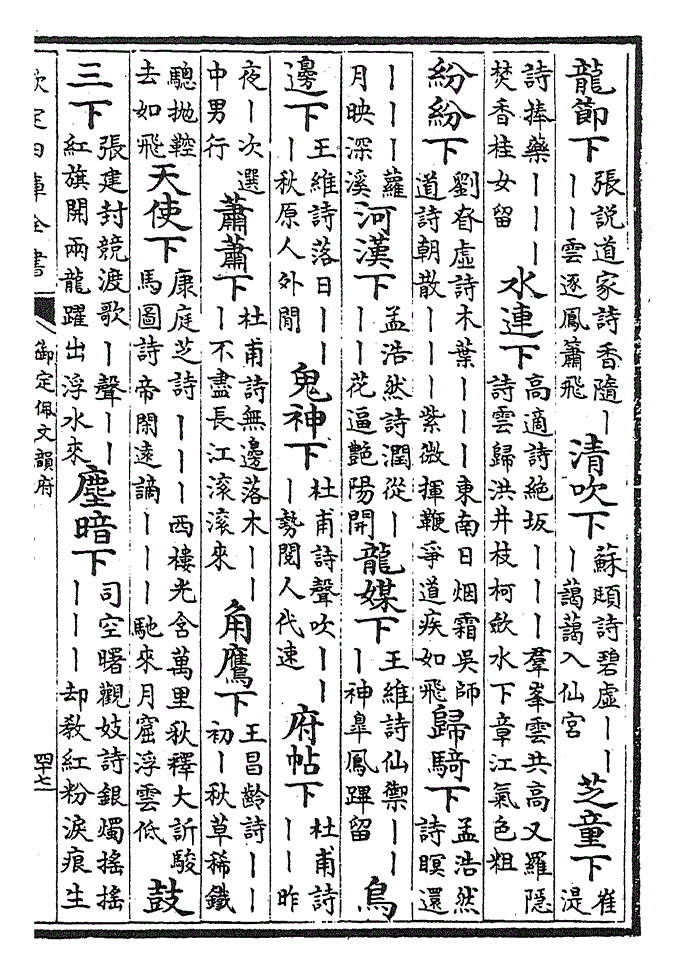 龍節下 張説道家詩香隨丨丨丨雲逐鳳簫飛 清吹下 蘇頲詩碧虛丨丨丨藹藹入仙宮 芝童下 崔湜
詩捧藥丨丨丨焚香桂女留 水連下 高適詩絶坂丨丨丨羣峯雲共高又羅隱詩雲歸洪井枝柯斂水下章江氣色粗
紛紛下 劉眘虛詩木葉丨丨丨東南日烟霜吳師道詩朝散丨丨丨紫微揮鞭爭道疾如飛 歸騎下 孟浩然詩暝還
丨丨丨蘿月映深溪 河漢下 孟浩然詩潤從丨丨丨花逼艷陽開 龍媒下 王維詩仙禦丨丨丨神臯鳳蹕留 鳥
邊下 王維詩落日丨丨丨秋原人外閒 鬼神下 杜甫詩聲吹丨丨丨勢閱人代速 府帖下 杜甫詩丨丨昨
夜丨次選中男行 蕭蕭下 杜甫詩無邊落木丨丨丨不盡長江滾滾來 角鷹下 王昌齡詩丨丨初丨秋草稀鐵
驄抛鞚去如飛 天使下 康庭芝詩丨丨丨西樓光含萬里秋釋大訢駿馬圖詩帝閑遠謫丨丨丨馳來月窟浮雲低 鼓
三下 張建封競渡歌丨聲丨丨紅旗開兩龍躍出浮水來 塵暗下 司空曙觀妓詩銀燭搖搖丨丨丨却教紅粉淚痕生
欽定四庫全書 御定佩文韻府 四十七